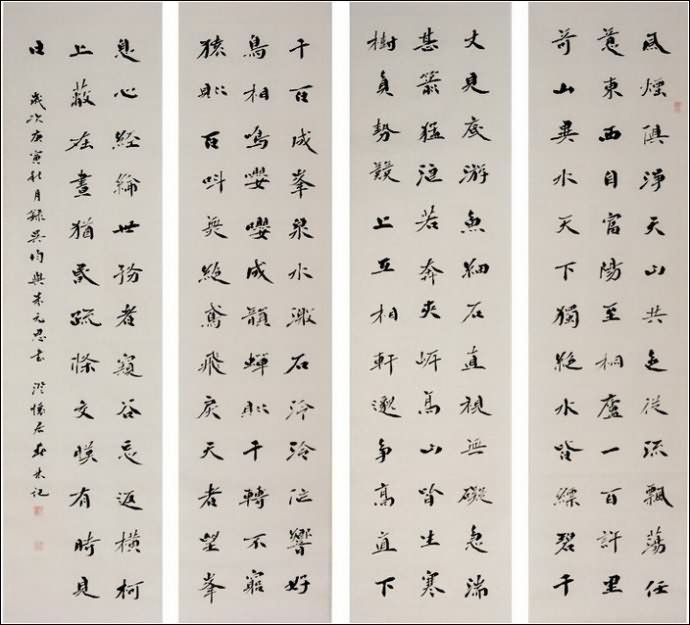 風煙俱淨天山共色從流飄蕩任
意東西自富陽至桐廬一百許里
奇山異水天下獨絕水皆縹碧千
丈見底游魚細石直視無礙急湍
甚箭猛浪若奔夾岸高山皆生寒
樹負勢競上互相軒邈爭高直下
千百成峯泉水激石泠泠作響好
鳥相鳴嚶嚶成韻蟬則千轉不窮
猿則百叫無絕鳶飛戾天者望峯
息心經綸世務者窺谷忘返橫柯
上蔽在晝猶昏疏條交映有時見
日
歲次庚寅秋月錄吳均與朱元思書 澄懷居